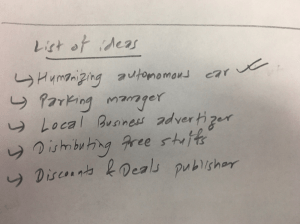 List of ideas
↳ Humanizing autonomous car ✓
↳ Parking manager
↳ Local Business advertizer
↳ Distributing free stuffs
↳ Discounts & Deals publisher